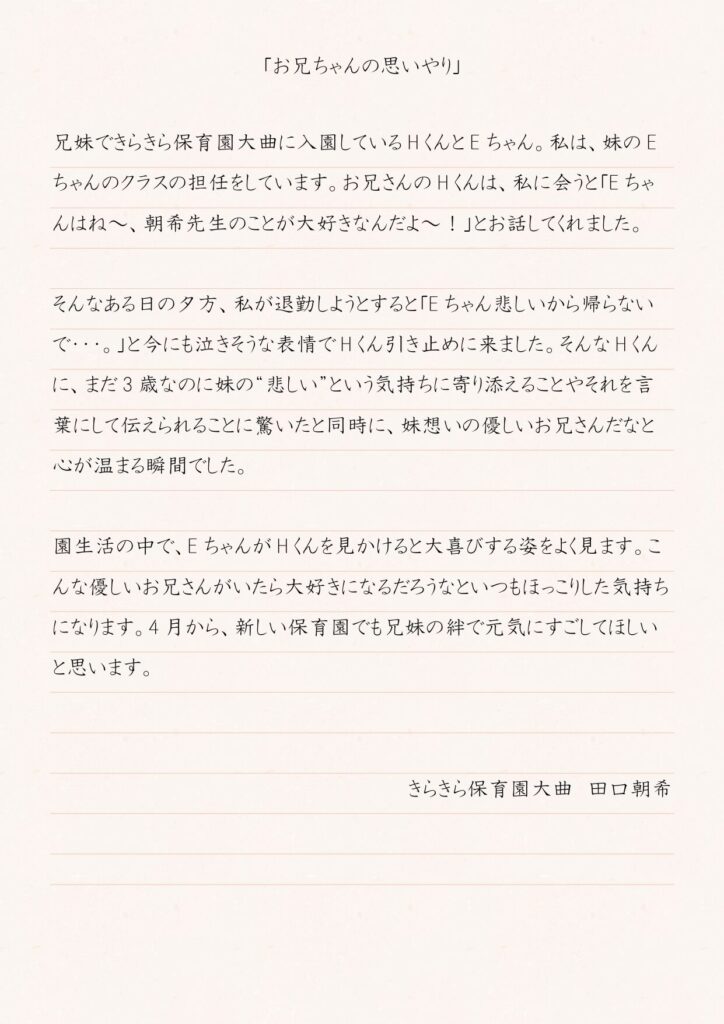 「お兄ちゃんの思いやり」
兄妹できらきら保育園大曲に入園しているHくんとEちゃん。私は、妹のE
ちゃんのクラスの担任をしています。お兄さんのHくんは、私に会うと「Eちゃ
んはね～、朝希先生のことが大好きなんだよ～！」とお話してくれました。
そんなある日の夕方、私が退勤しようとすると「Eちゃん悲しいから帰らない
で・・・。」と今にも泣きそうな表情でHくん引き止めに来ました。そんなHくん
に、まだ3歳なのに妹の“悲しい”という気持ちに寄り添えることやそれを言
葉にして伝えられることに驚いたと同時に、妹想いの優しいお兄さんだなと
心が温まる瞬間でした。
園生活の中で、EちゃんがHくんを見かけると大喜びする姿をよく見ます。こ
んな優しいお兄さんがいたら大好きになるだろうなといつもほっこりした気持ち
になります。4月から、新しい保育園でも兄妹の絆で元気にすごしてほしい
と思います。
きらきら保育園大曲　田口朝希